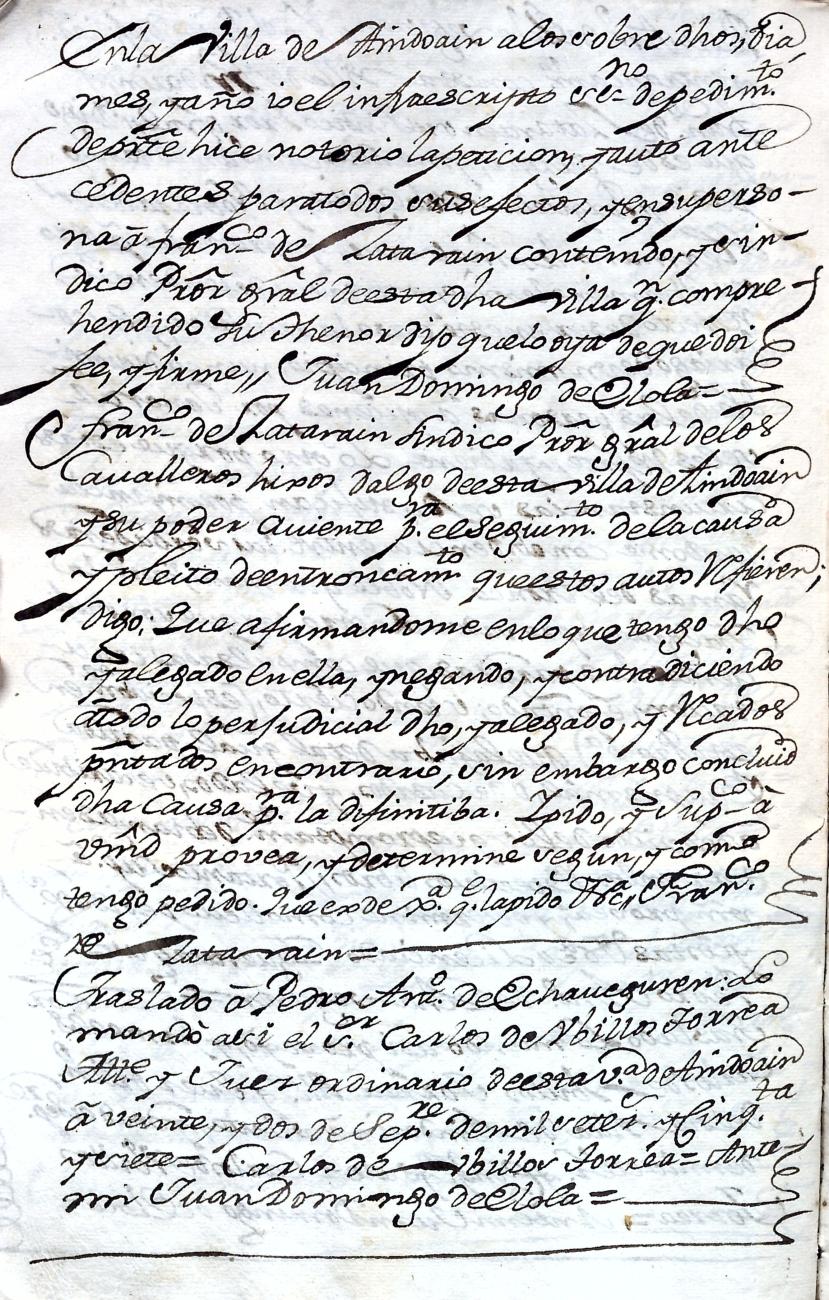 Enla Villa de Aindoain alos sobre dhos, dia
mes, y año io el infraescripto ess.no depedim.to
de prte hice notorio lapeticion, y auto ante
cedentes paratodos susefectos, y ensuperso-
na â fran.co de Latarain contenido, y sin-
dico Prôr grâl deesta dha villa q.n compre-
hendido su thenor dijo quelo oya deque doi
fee, y firme,, Juan Domingo de Elola=
fran.co de Latarain sindico Prôr grâl delos
Cavalleros hixos dalgo deesta villa de Aindoain
y su poder aviente p.ra elseguim.to dela causa
y pleito deentroncam.to queestos autos Refieren;
digo: Que afirmandome enloque tengo dho
y alegado en ella, y negando, y contradiciendo
atodo lo perjudicial dho, y alegado, y Rcados
pñtados encontrario, sin embargo concluio
dha Causa p.ra la difinitiba. Ipido, y Sup.co â
vmd provea, y determine segun, y como
tengo pedido. Que es de xa. q.e lapido Vtc,, Fran.co
de Latarain=
Traslado â Pedro Ant.o de Echaveguren: Lo
mandò asi el s.or Carlos de Vbillos Torrea
Alle. y Juez ordinario deesta v.a de Aindoain
â veinte, y dos de Sep.re demil setez.s y Cinq.ta
y siete= Carlos de Vbillos Torrea= Ante-
mi Juan Domingo de Elola=